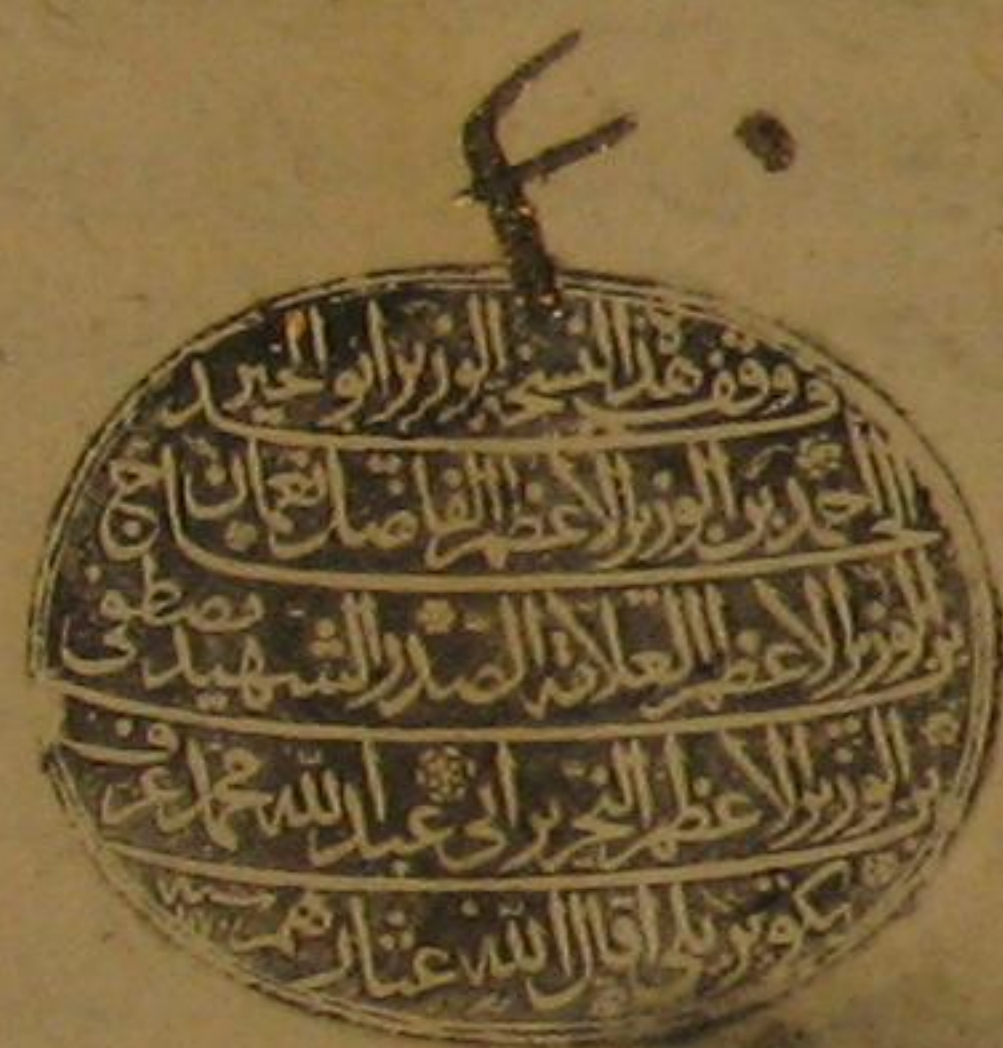 ٤٠
وقف هذا النسخه الوزير ابو الخير
الحاج احمد بن الوزير الاعظم الفاضل نعمان
بن الوزير الاعظم العلامه الصدر الشهيد مصطفى
بن الوزير الاعظم النحرير ابي عبد الله محمد عرف
بكوپريلي اقال الله عثارهم